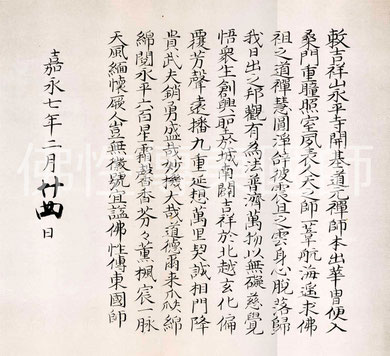 敕吉祥山永平寺開基道元禪師本出華冑便入
桑門重瞳照室夙表人天之師一葦航海遙求佛
祖之道禪慧圓淨被雲之雲身心脫落歸
我日出之邦觀有為法普濟萬物以無礙慈覺
悟眾生創興聖於城南開吉祥於北越玄化偏
覆芳聲遠播九重延想萬里契誠相門降
貴武夫銷勇盛哉妙機大哉道德爾來瓜瓞綿
綿閱永平六百星霜馨香芬々薰楓宸一脈
天風緬懷厥人豈無徽號宜謚佛性傳東國師
嘉永七年二月廿四日